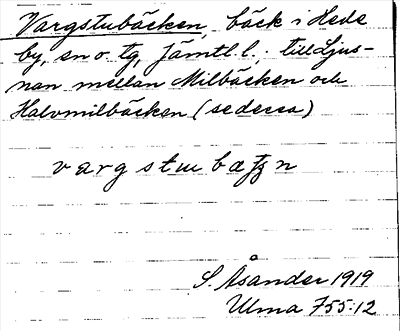 Vargstubäcken, bäck i Hede
by, sn o tg, Jämtl. l.; till Ljus-
nan mellan Milbäcken och
Halvmilbäcken (se dessa)
v a r g s t u b æ n
S. Åsander 1919
Ulma 755:12